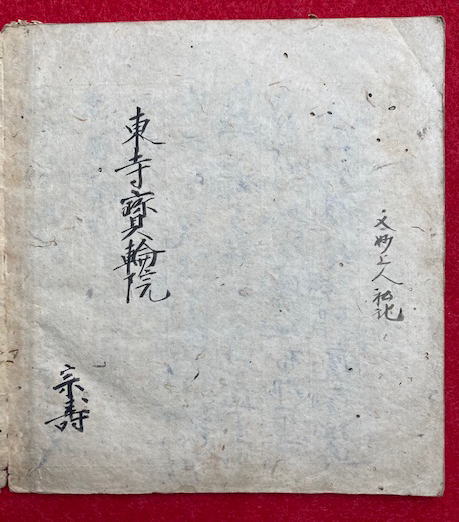 文妙上人私記
東寺寶輪院
宗壽